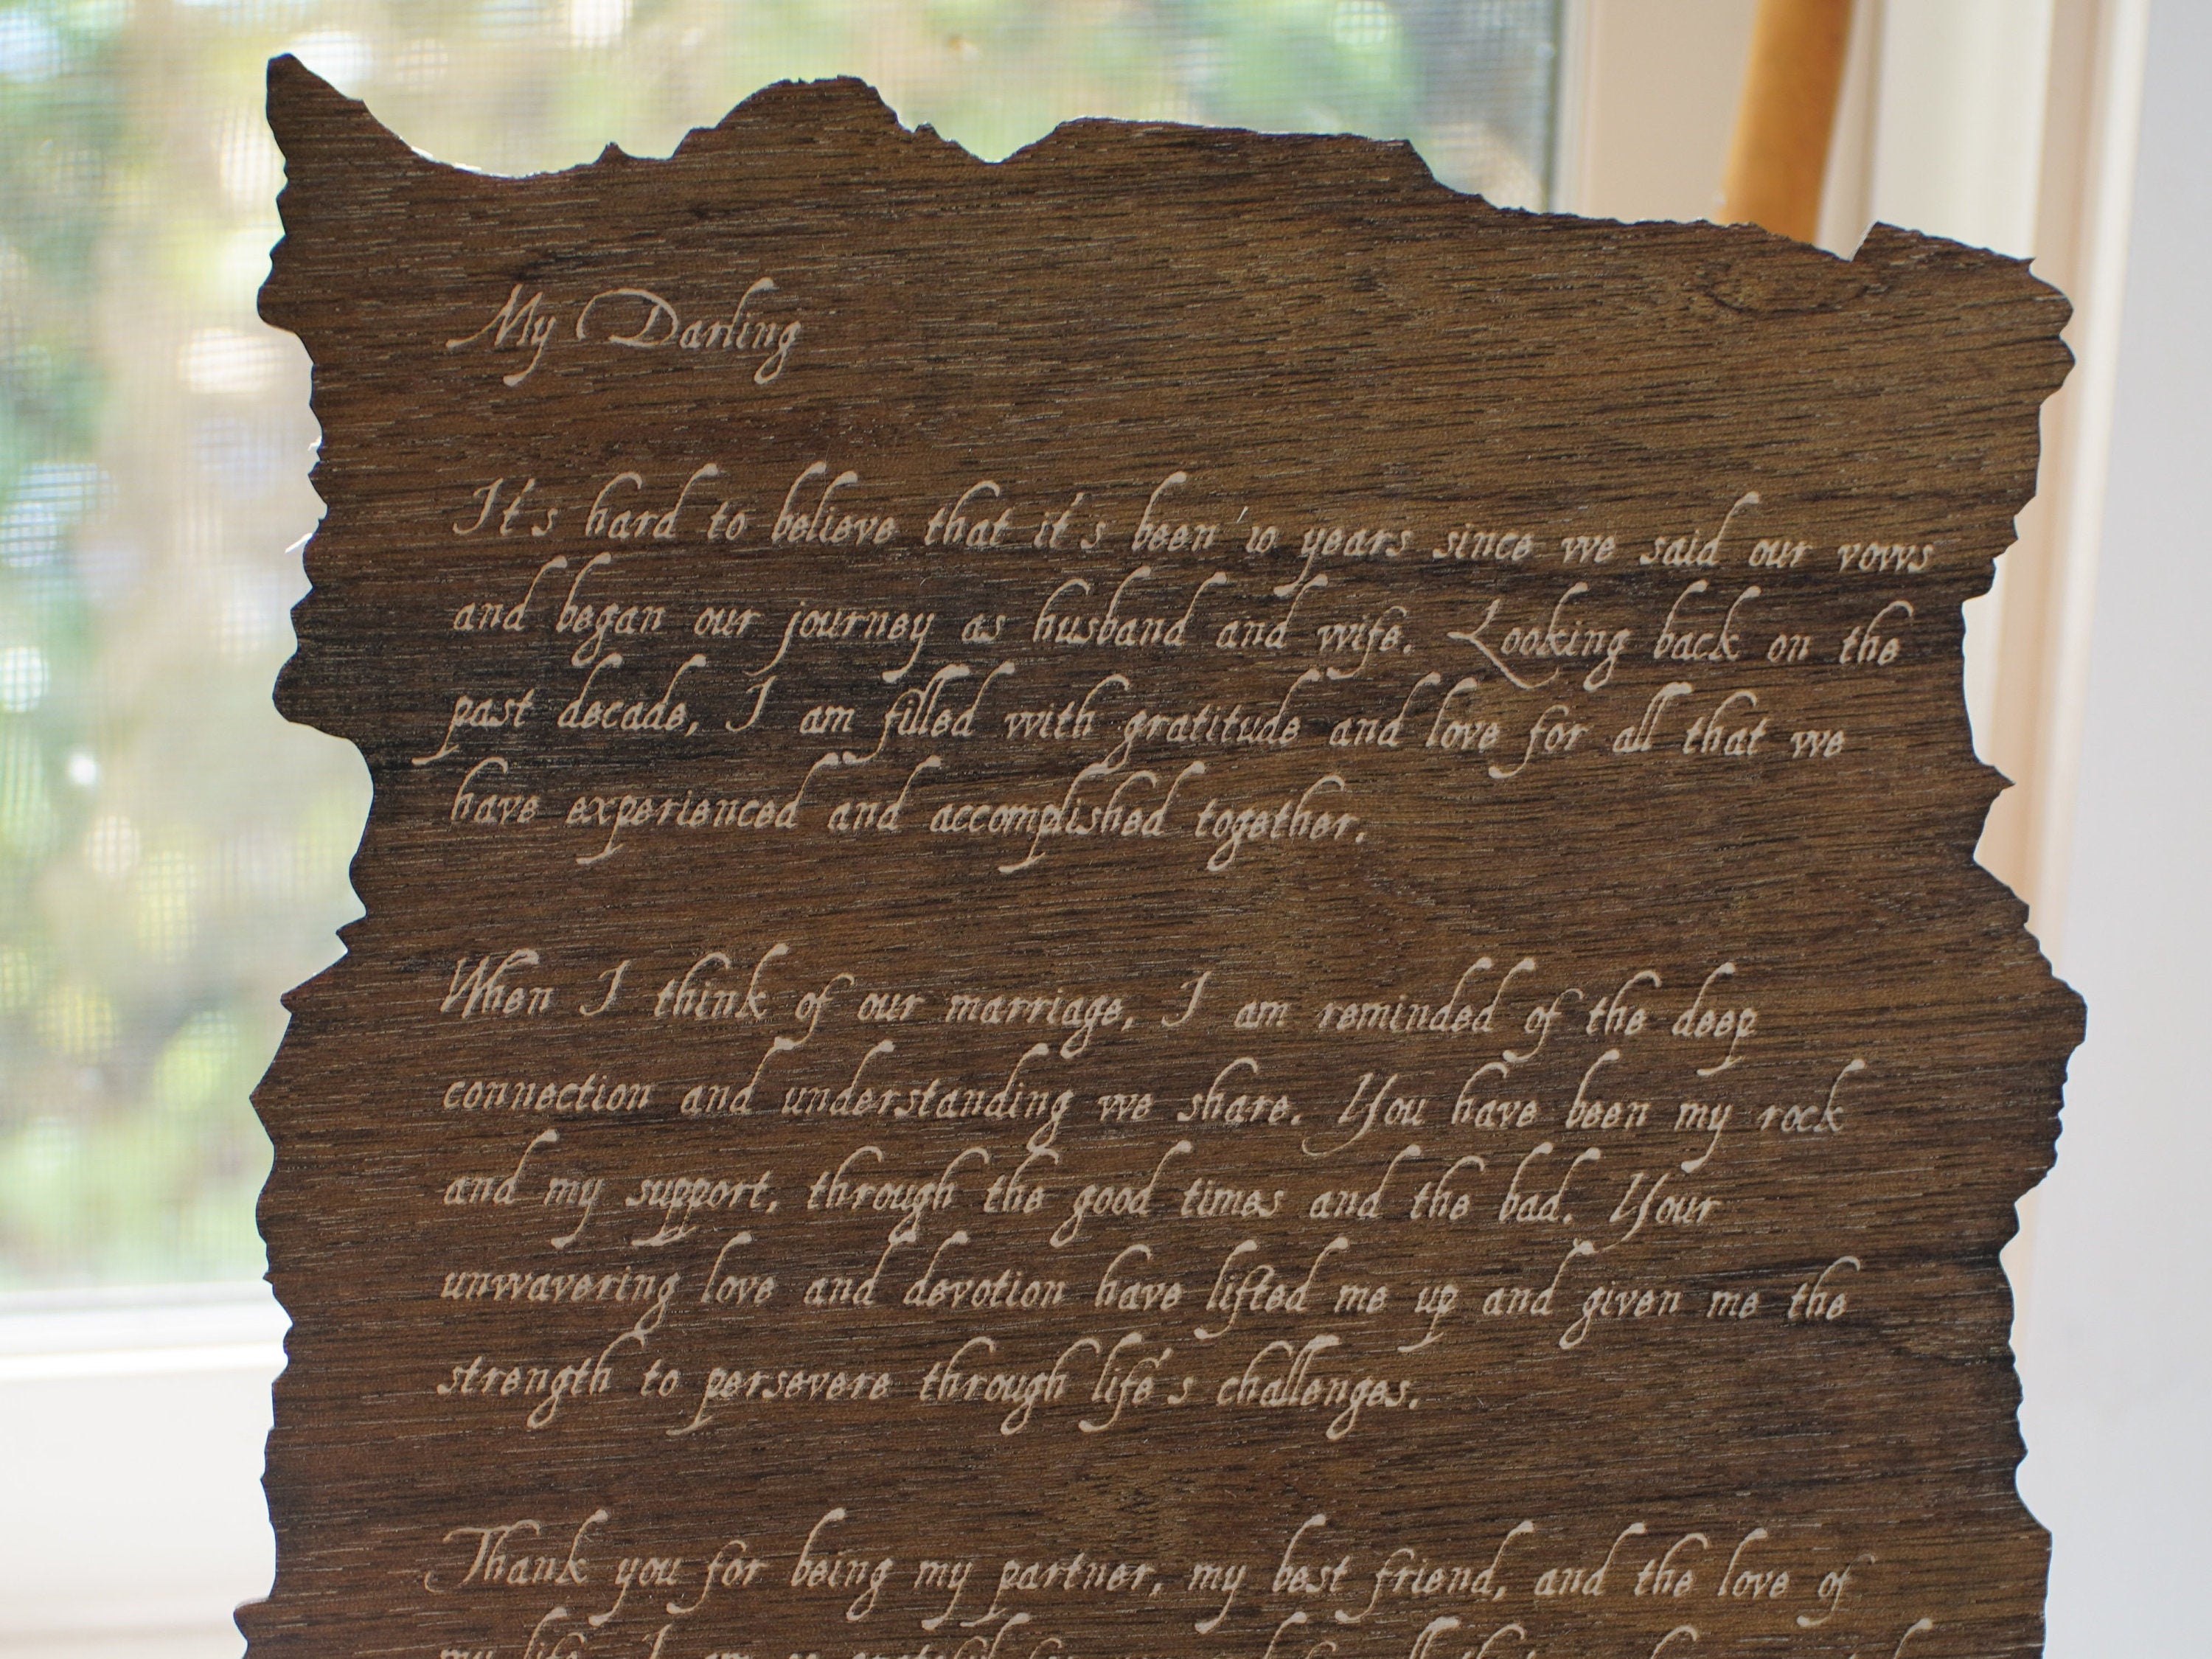 My Darling
It's hard to believe that it's been 10 years since we said our vows
and began our journey as husband and wife. Looking back on the
past decade, I am filled with gratitude and love for all that we
have experienced and accomplished together.
When I think of our marriage, I am reminded of the deep
connection and understanding we share. You have been my rock
and my support, through the good times and the bad. Your
unwavering love and devotion have lifted me up and given me the
strength to persevere through life's challenges.
Thank you for being my partner, my best friend, and the love of
my life. I am so grateful